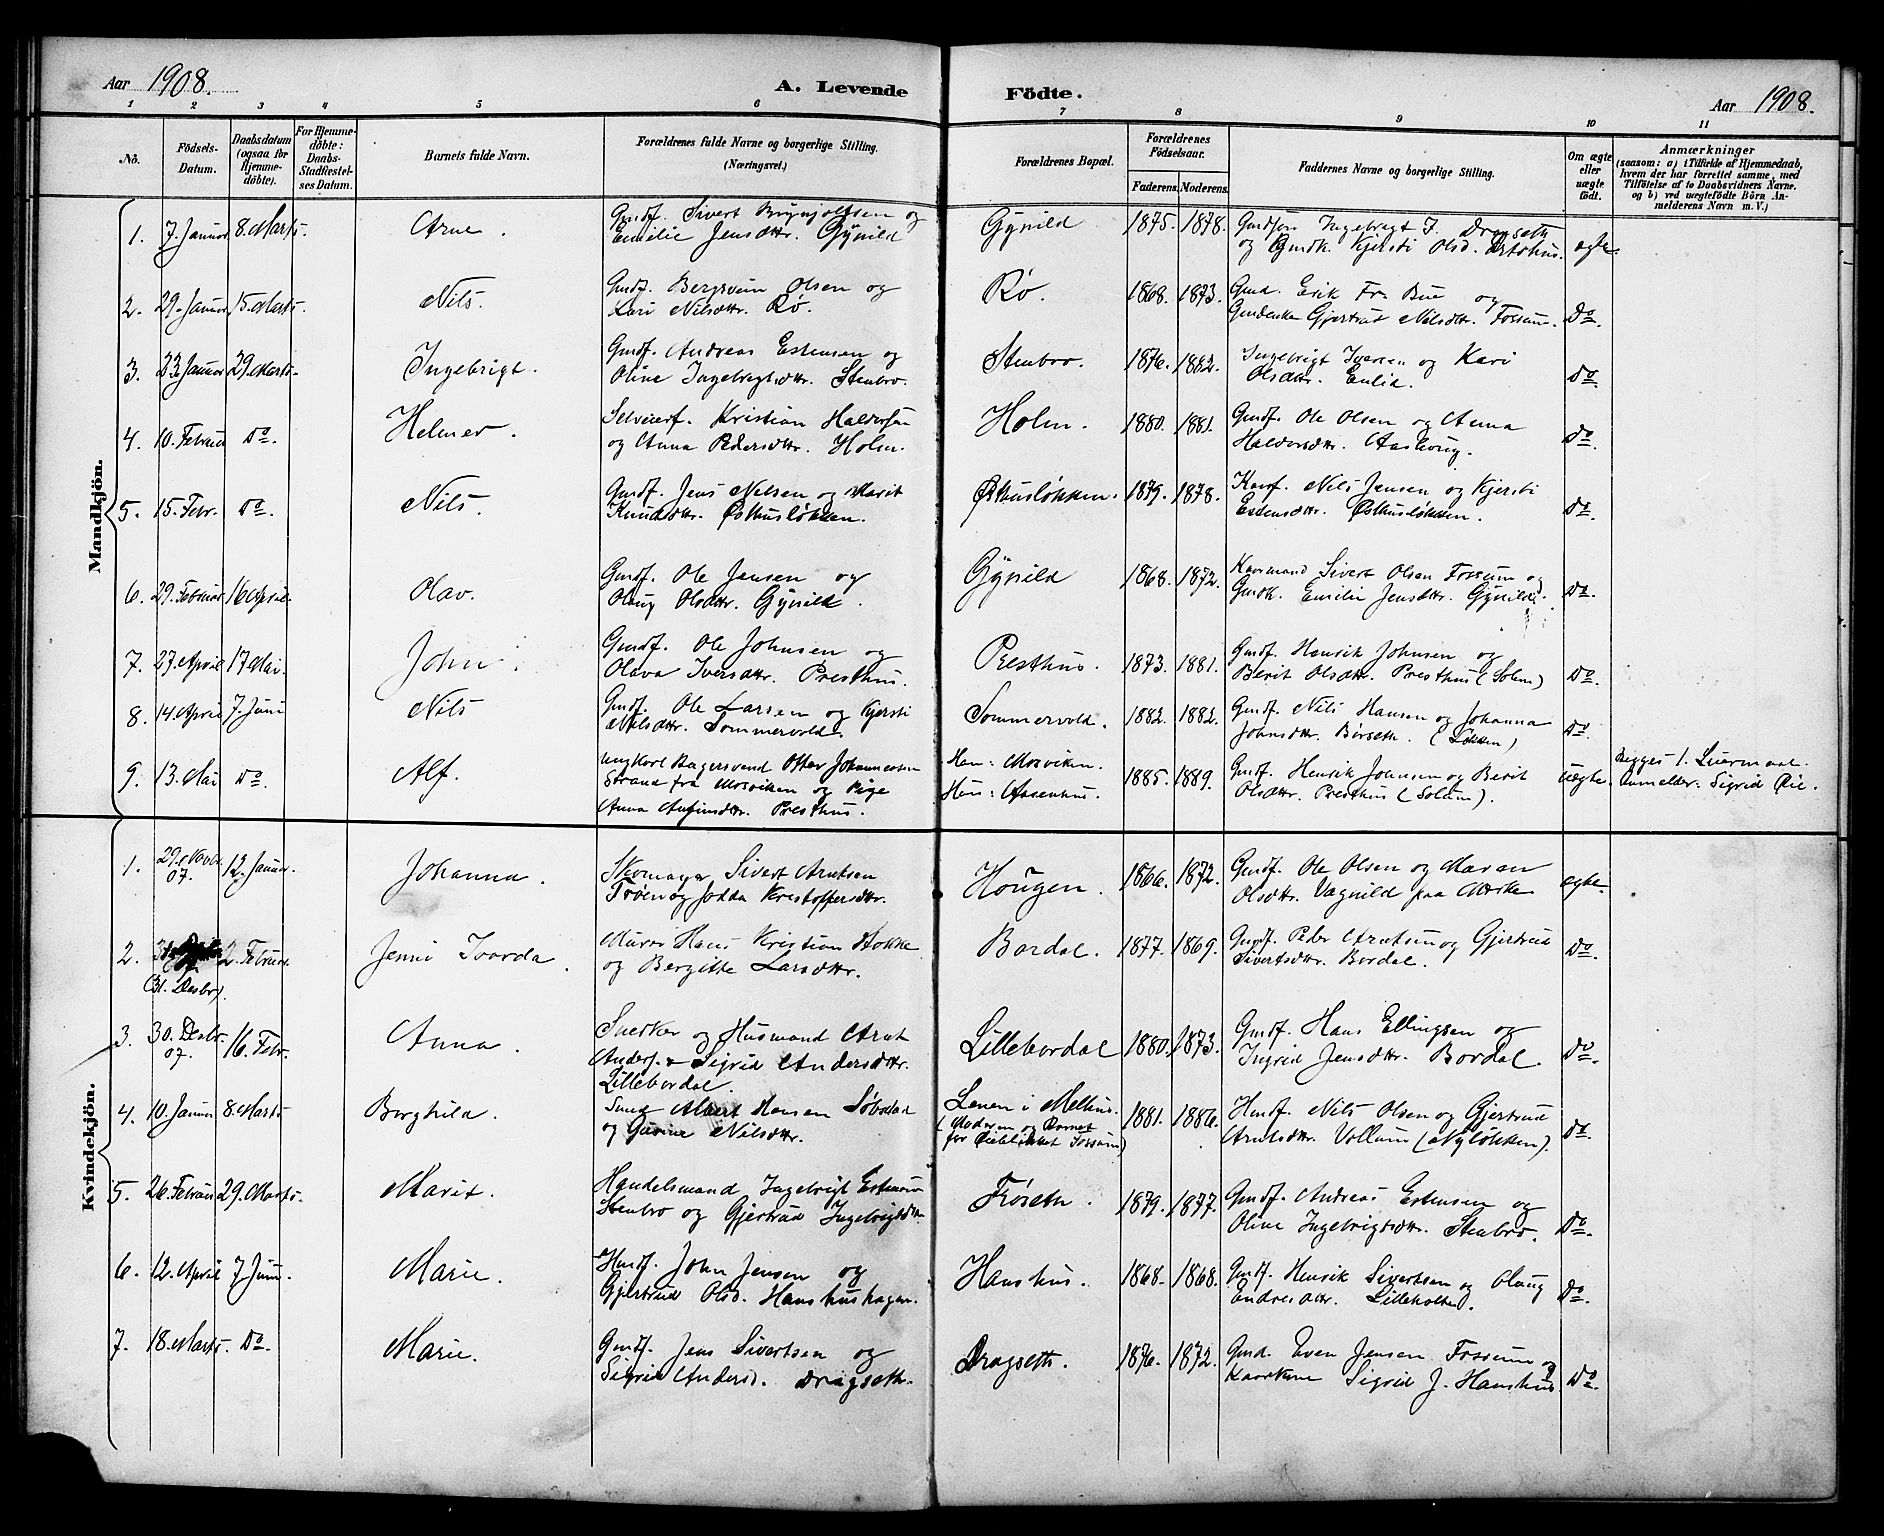 Aar 1908. A. Levende Födte. Aar 1908.
1 2 3 4 5 6 7 8 9 10 11
No. Födsels-Datum. Daabsdatum (ogsaa for Hjemme-döbte). For Hjemme-döbte: Daabs-Stadfæstel-ses Datum. Barnets fulde Navn. Forældrenes fulde Navne og borgerlige Stilling. (Næringsvei.) Forældrenes Bopæl. Forældrenes Födselsaar. Faderens. Moderens. Faddernes Navne og borgerlige Stilling. Om ægte eller uægte födt. Anmærkninger (saasom: a) i Tilfælde af Hjemmedaab, hvem der har forrettet samme, med Tilföielse af to Daabsvidners Navne. og b) ved uægtefödte Börn An-melderens Navn m. V.)
Mandkjön.
1. 7. Januar 8. Marts. Arne. Gmdf. Sivert Brynjolfsen og
Emilie Jensdttr. Gynild Gynild 1875. 1878. Ingebrigt J. Dragseth
og Gmdk. Kjersti Olsd. ægte.
2. 29. Januar 15. Marts. Nils. Gmdf. Bergsvein Olsen og
Kari Nilsdttr. Rø. Rø. 1868. 1873. Gmd. Erik Fr. Bue og
Gjertrud Nilsdttr. Fossum. Do.
3. 23. Januar 29. Marts. Ingebrigt. Gmdf. Andreas Estensen og
Oline Ingebrigtsdttr. Stenbro. Stenbro. 1876. 1882. Ingebrigt Iversen og Kari
Olsdttr. Enlid. Do.
4. 10. Februar Do. Helmer. Selveierf. Kristian Haldorsen
og Anna Pedersdttr. Holm. Holm. 1880. 1881. Gmdf. Ole Olsen og Anna
Haldorsdttr. Do.
5. 15. Febr. Do. Nils. Gmdf. Jens Nilsen og Marit
Knudsdttr. Østhusløkken. Østhusløkken. 1879. 1878. Kaarf. Nils Jensen og Kjersti
Estensdttr. Østhusløkken. Do.
6. 29. Februar 16 April. Olav. Gmdf. Ole Jensen og
Olaug Olsdttr. Gynild. Gynild 1868. 1872. Kaarmand Sivert Olsen Fossum og
Gmdk. Emilie Jensdttr. Gynild. Do.
7. 27. April 17 Mai. John. Gmdf. Ole Johnsen og
Olava Iversdttr. Presthus. Presthus. 1873. 1881. Gmdf. Henrik Johnsen og
Berit Olsdttr. Presthus (Solem) Do.
8. 14. April 7. Juni Nils Gmdf. Ole Larsen og Kjersti
Nilsdttr. Sommervold Sommervold. 1882. 1882. Gmdf. Nils Hansen og Johanna
Johnsdttr. Børseth. (Løkken) Do.
9. 13. Mai Do. Alf. Ungkarl Bagersvend Otter Johannessen
Strand fra Mosviken og Pige
Anna Arfinsdttr. Presthus. Han: Mosviken.
Hun: 1885. 1889. Gmdf. Henrik Johnsen og Berit
Olsdttr. Presthus (Solem). uægte. Begges 1. Leiermaal.
Anmelder: Sigrid Øie.
Kvindekjön.
1. 29. Novbr.
07. 12. Januar. Johanna. Skomager Sivert Arntsen
Trøen og Jodda Kristoffersdttr. Hougen. 1866. 1872. Gmdf. Ole Olsen og Maren
Olsdttr. Vagnild paa ægte.
2. 2. Februar. Jenni Tvorda. Murer Hans Kristian Hokke
og Bergitte Larsdttr. Bordal. 1877. 1869. Gmdf. Peder Arntsen og Gjertrud
Sivertsdttr. Bordal. Do.
(31. Desbr).
3. 30. Desbr.
07. 16. Febr. Anna. Snedker og Husmand Arnt
Andersf. & Sigrid Andersdttr.
Lillebordal. Lillebordal 1880. 1873. Gmdf. Hans Ellingsen og
Ingrid Jensdttr. Bordal. Do.
4. 10. Januar 8. Marts Borghild. Smed Albert Hansen
og Gurine Nilsdttr. i Melhus.
(Moderen og Barnet
for Øieblikket Fossum) 1881. 1886. Nils Olsen og Gjertrud
Arntsdttr. Vollum (Nyløkken). Do.
5. 26. Februar 29. Marts. Marit. Handelsmand Ingebrigt Estensen
Stenbro og Gjertrud Ingebrigtsdttr. Frøseth. 1879. 1877. Gmdf. Andreas Estensen og
Oline Ingebrigtsdttr. Stenbro. Do.
6. 12. April 7 Juni. Marie. Husmf. John Jensen og
Gjertrud Olsd. Hanshushagen. Hanshus. 1868. 1868. Gmdf. Henrik Sivertsen og Olaug
Endresdttr. Do.
7. 18. Marts. Do. Marie. Gmdf. Jens Sivertsen og
Sigrid Andersd. Dragseth. Dragseth. 1876. 1872. Gmd. Even Jensen Fossum og
Sigrid J. Hanshus. Do.